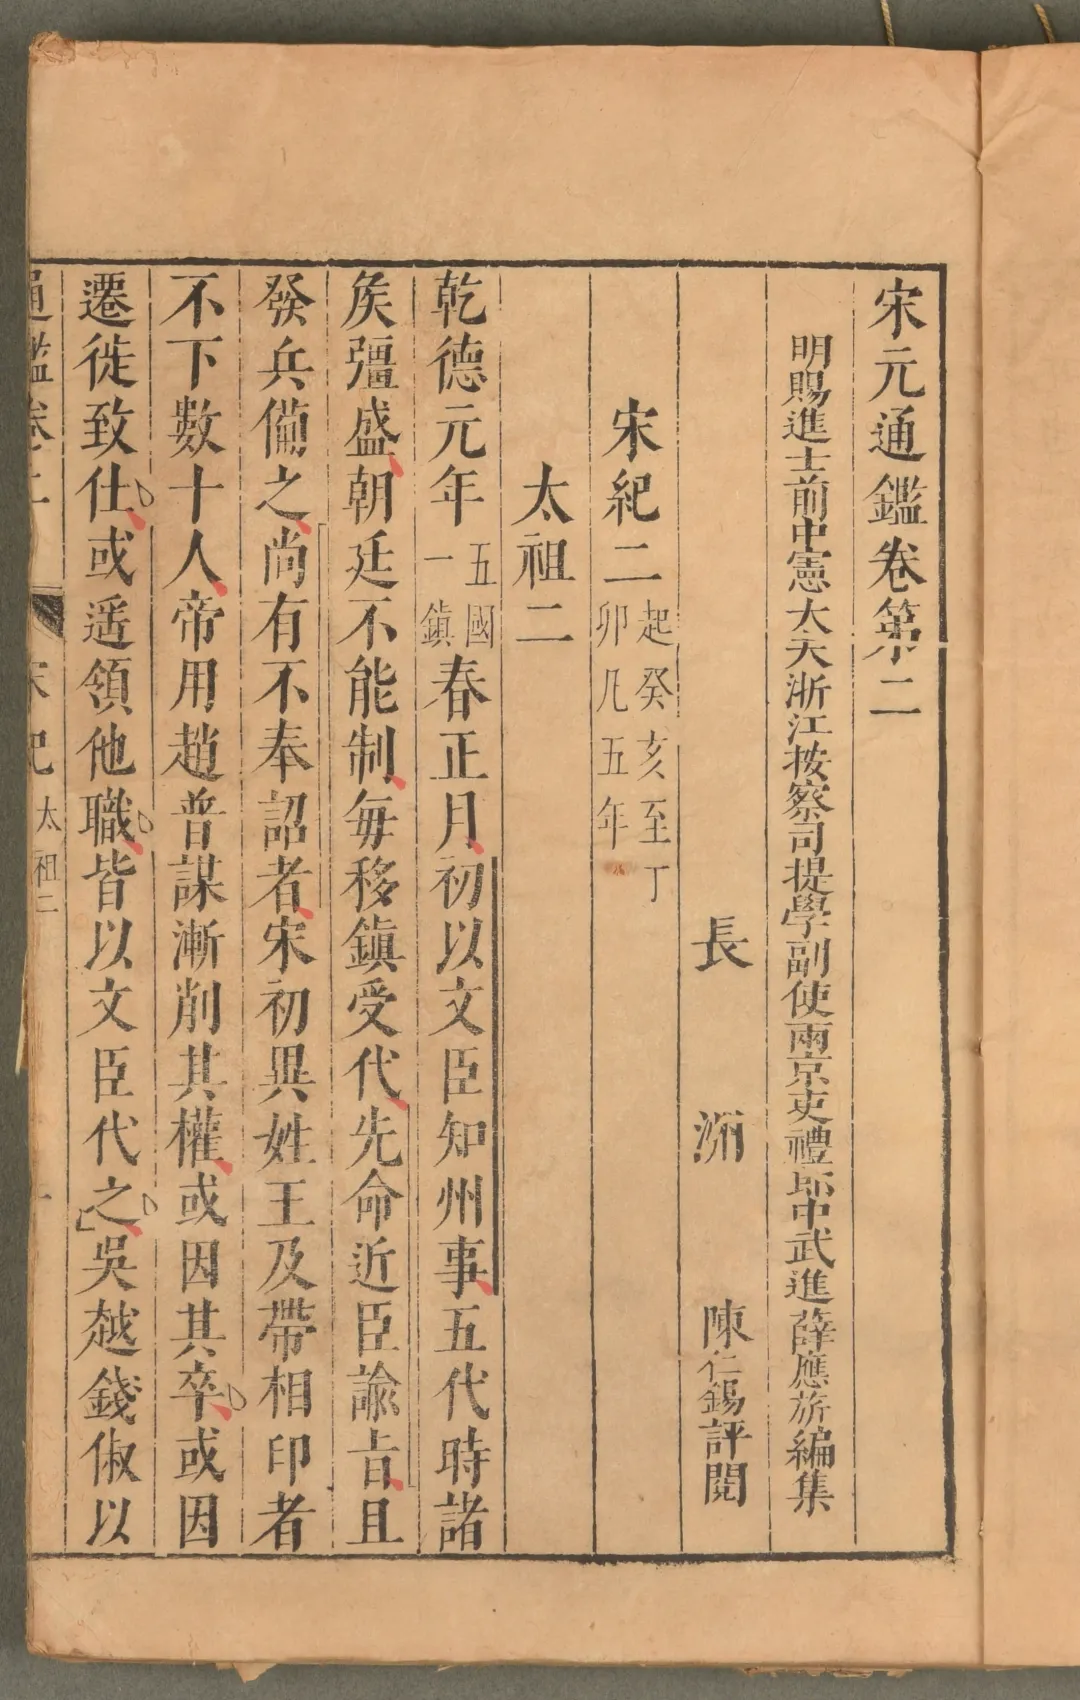 宋元通鑑卷第二
明賜進士前中憲大夫浙江按察司提學副使兩京吏禮郎中武進薛應旂編集
長洲 陳仁錫評閱
宋紀二起癸亥至丁卯凡五年
太祖二
乾德元年五國一鎮春正月初以文臣知州事五代時諸
矦彊盛朝廷不能制每移鎮受代先命近臣諭㫖且
發兵僃之尚有不奉詔者宋初異姓王及帶相印者
不下數十人帝用趙普謀漸削其權或因其卒或因
遷徙致仕或遥領他職皆以文臣代之吳越錢俶以
通鑑卷二 宋紀 太祖二 一